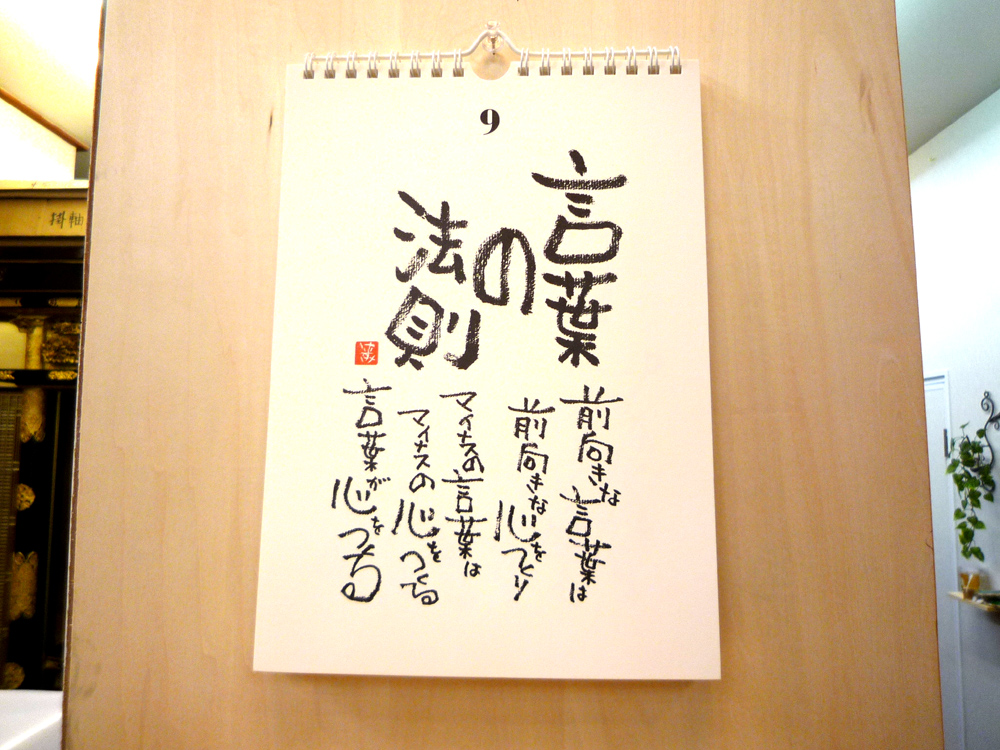 9
言葉
の
法則
前向きな言葉は
前向きな心をつくり
マイナスの言葉は
マイナスの心をつくる
言葉が心をつくる
掛軸